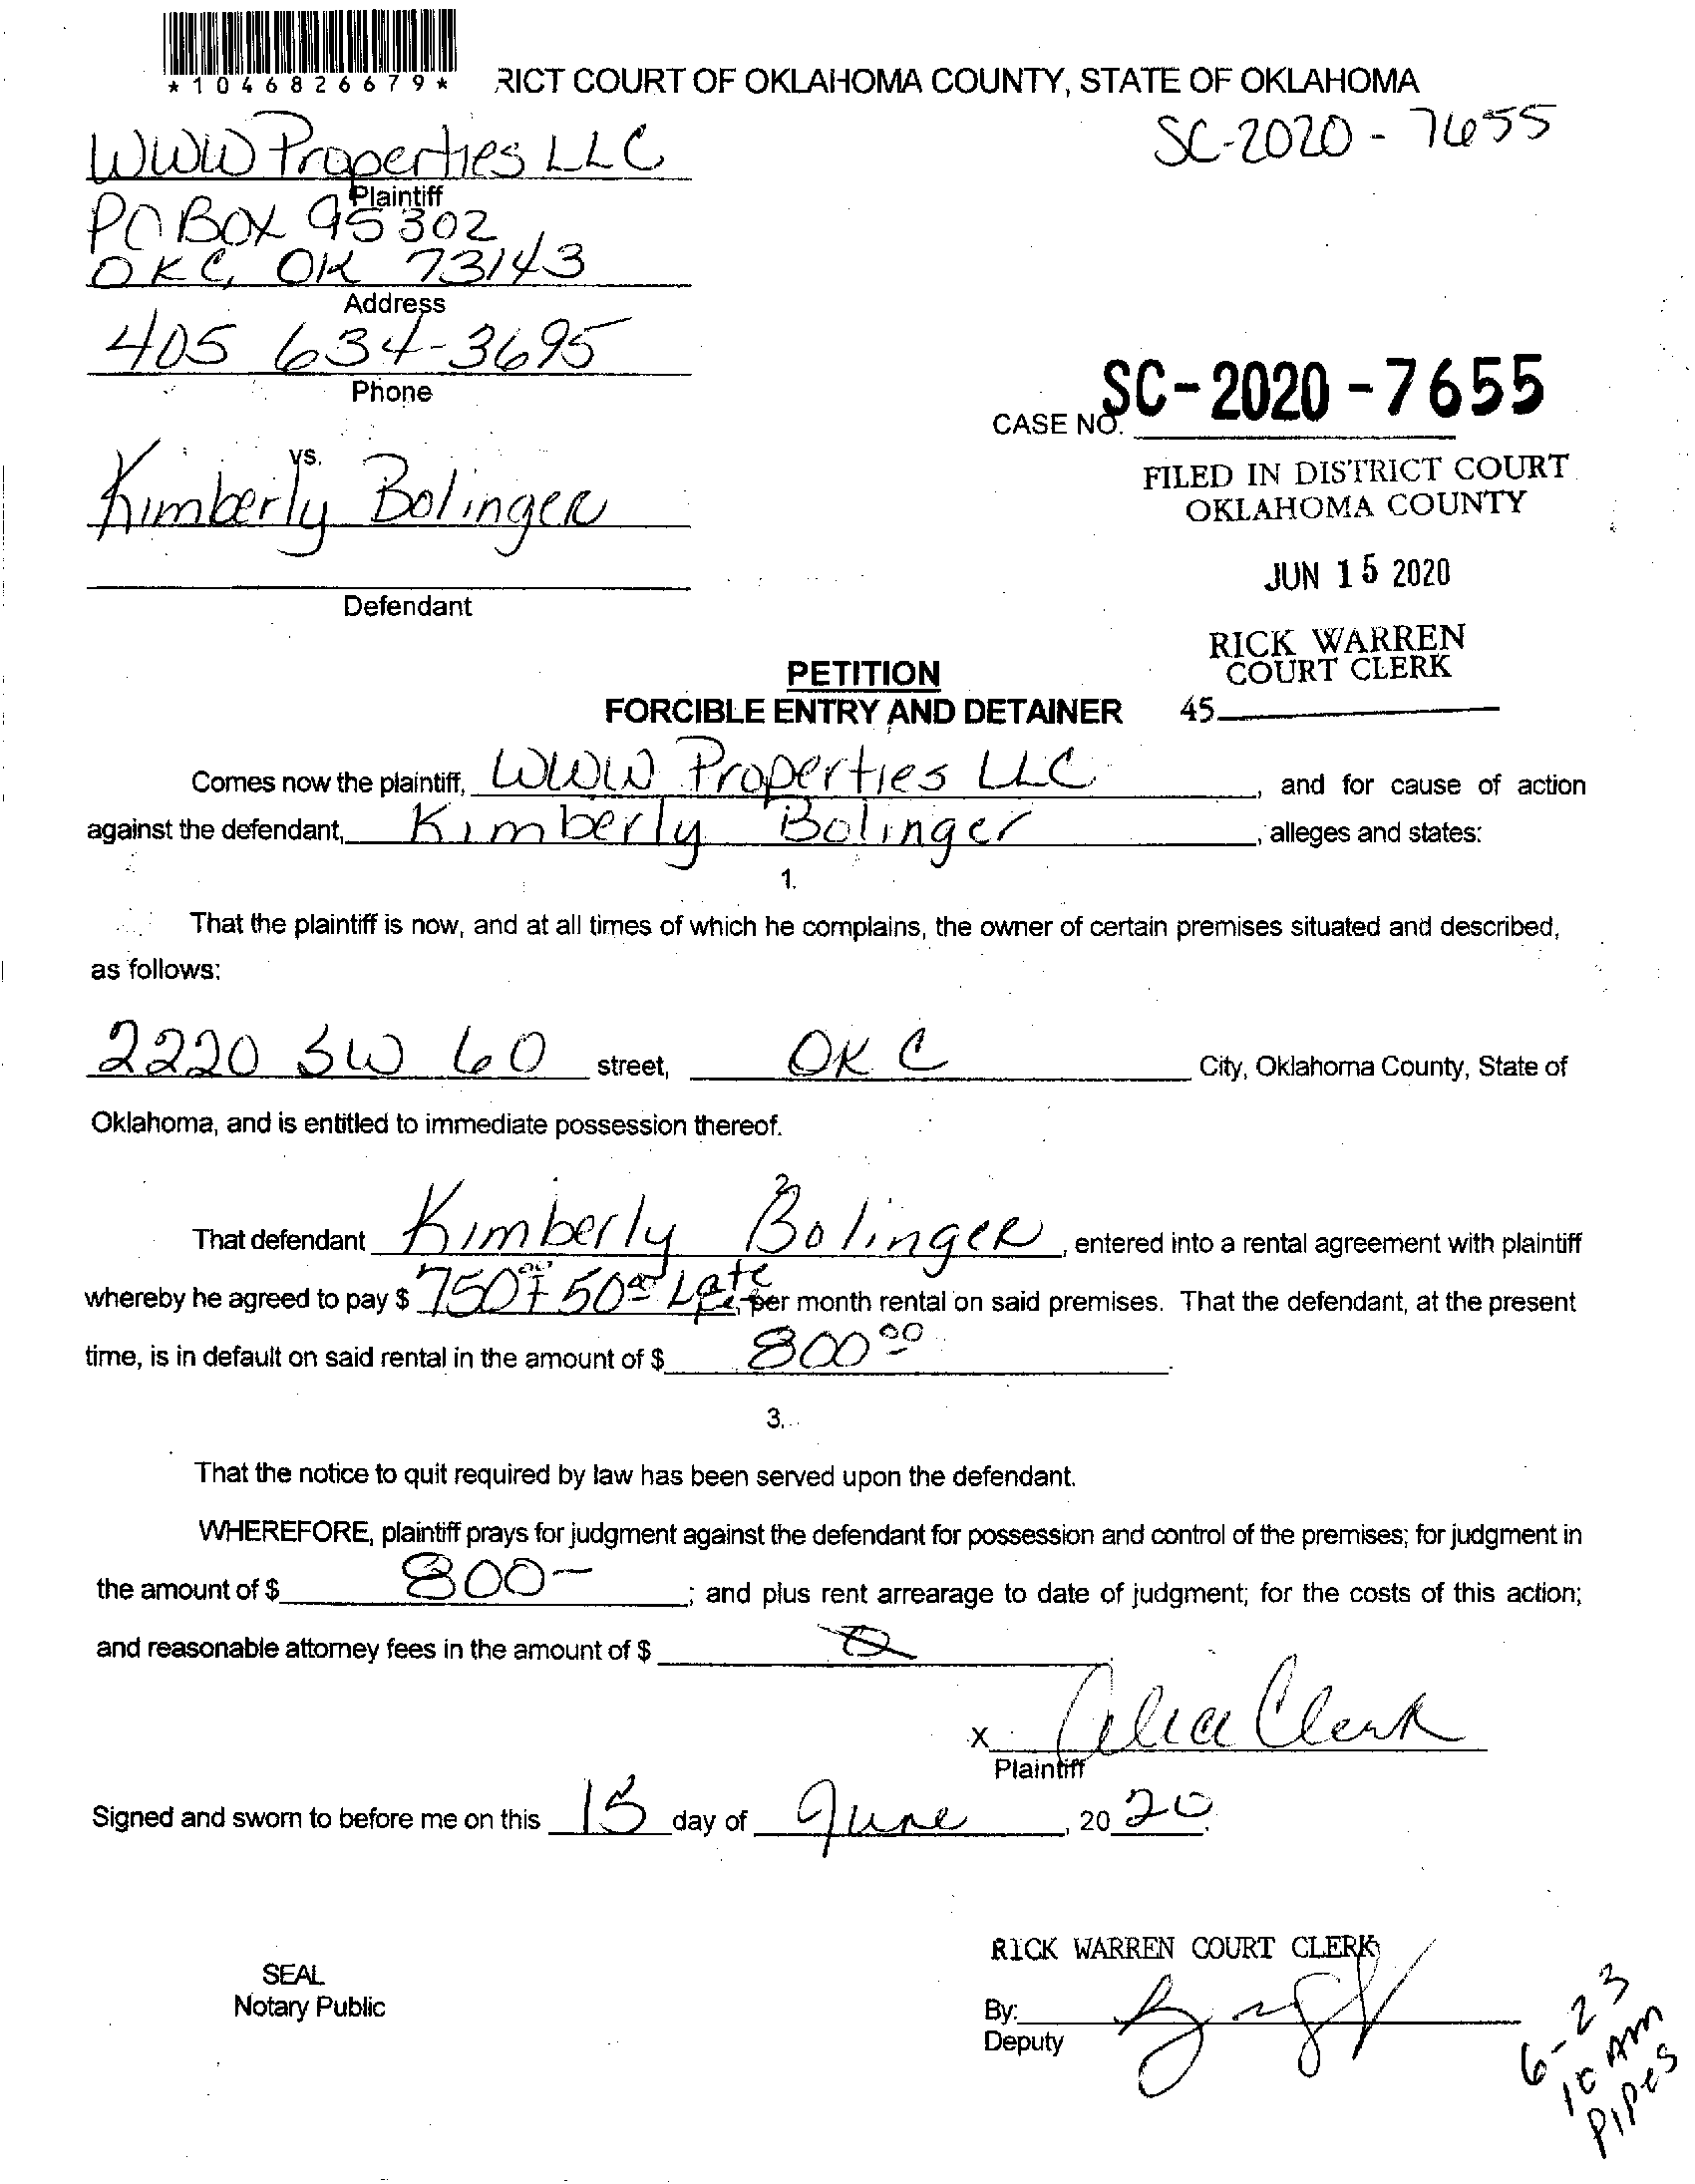 *1046826679*
RICT COURT OF OKLAHOMA COUNTY, STATE OF OKLAHOMA
SC-2020 - 7655
WWW Properties LLC
Plaintiff
PO BOX 95302
OKC, OK 73143
Address
405 634-3695
Phone
CASE NO. SC-2020-7655
vs.
Kimberly Bolinger
FILED IN DISTRICT COURT
OKLAHOMA COUNTY
JUN 15 2020
Defendant
RICK WARREN
COURT CLERK
PETITION
FORCIBLE ENTRY AND DETAINER
45
Comes now the plaintiff, WWW Properties LLC, and for cause of action
against the defendant, Kimberly Bolinger, alleges and states:
1.
That the plaintiff is now, and at all times of which he complains, the owner of certain premises situated and described,
as follows:
2220 SW 60 street, OKC City, Oklahoma County, State of
Oklahoma, and is entitled to immediate possession thereof.
2
That defendant Kimberly Bolinger, entered into a rental agreement with plaintiff
whereby he agreed to pay $ 750.00 + 50.00 Late, per month rental on said premises. That the defendant, at the present
time, is in default on said rental in the amount of $ 800.00.
3.
That the notice to quit required by law has been served upon the defendant.
WHEREFORE, plaintiff prays for judgment against the defendant for possession and control of the premises; for judgment in
the amount of $ 800-; and plus rent arrearage to date of judgment; for the costs of this action;
and reasonable attorney fees in the amount of $ 0
X Celia Clark
Plaintiff
Signed and sworn to before me on this 15 day of June, 20 20.
RICK WARREN COURT CLERK
SEAL
Notary Public
By:
Deputy
6-23
10 AM
Pipes